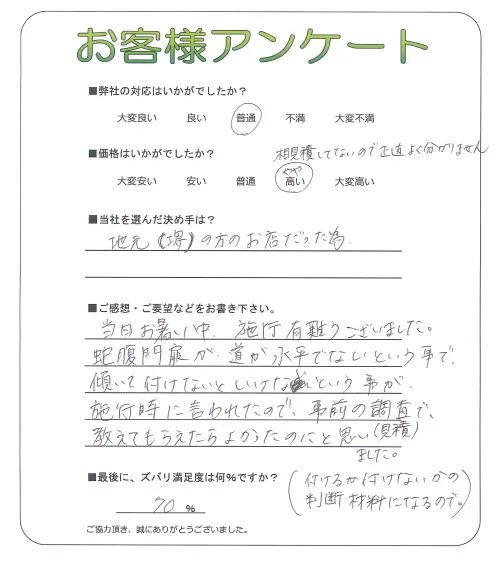 お客様アンケート
■弊社の対応はいかがでしたか？
大変良い　良い　普通　不満　大変不満
■価格はいかがでしたか？
相見積してないので正直よく分かりません
やや
大変安い　安い　普通　高い　大変高い
■当社を選んだ決め手は？
地元（堺）の方のお店だった為.
■ご感想・ご要望などをお書き下さい。
当日お暑い中、施行有難うございました。
蛇腹門扉が、道が水平でないという事で、
傾いて付けないといけないという事が、
施行時に言われたので、事前の調査で、
(見積)
教えてもらえたらよかったのにと思い
ました。
■最後に、ズバリ満足度は何％ですか？
70 %
(付けるか付けないかの
判断材料になるので。)
ご協力頂き、誠にありがとうございました。